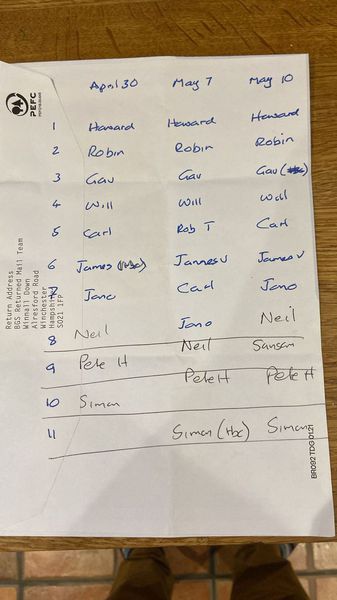 April 30 May 7 May 10
1 Howard Howard Howard
2 Robin Robin Robin
3 Gav Gav Gav
4 Will Will Will
5 Carl Rob T Carl
6 James James V James V
7 Jono Carl Jono
Neil Jono Neil
8 Neil Sansom
9 Pete H Pete H Pete H
10 Simon
11 Simon (tbc) Simon
PEFC
Return Address
BGS Returned Mail Team
Winnall Down
Alresford Road
Winchester
Hampshire
SO21 1FP
BR092 TDG 0121